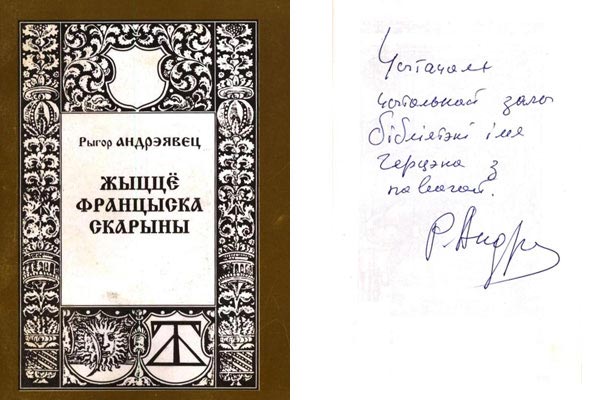 Рыгор АНДРЭЯВЕЦ
ЖЫЦЦЁ
ФРАНЦЫСКА
СКАРЫНЫ
Чытачам
чытальнай залы
бібліятэкі імя
Герцэна з
павагай.
Р. Андрэ